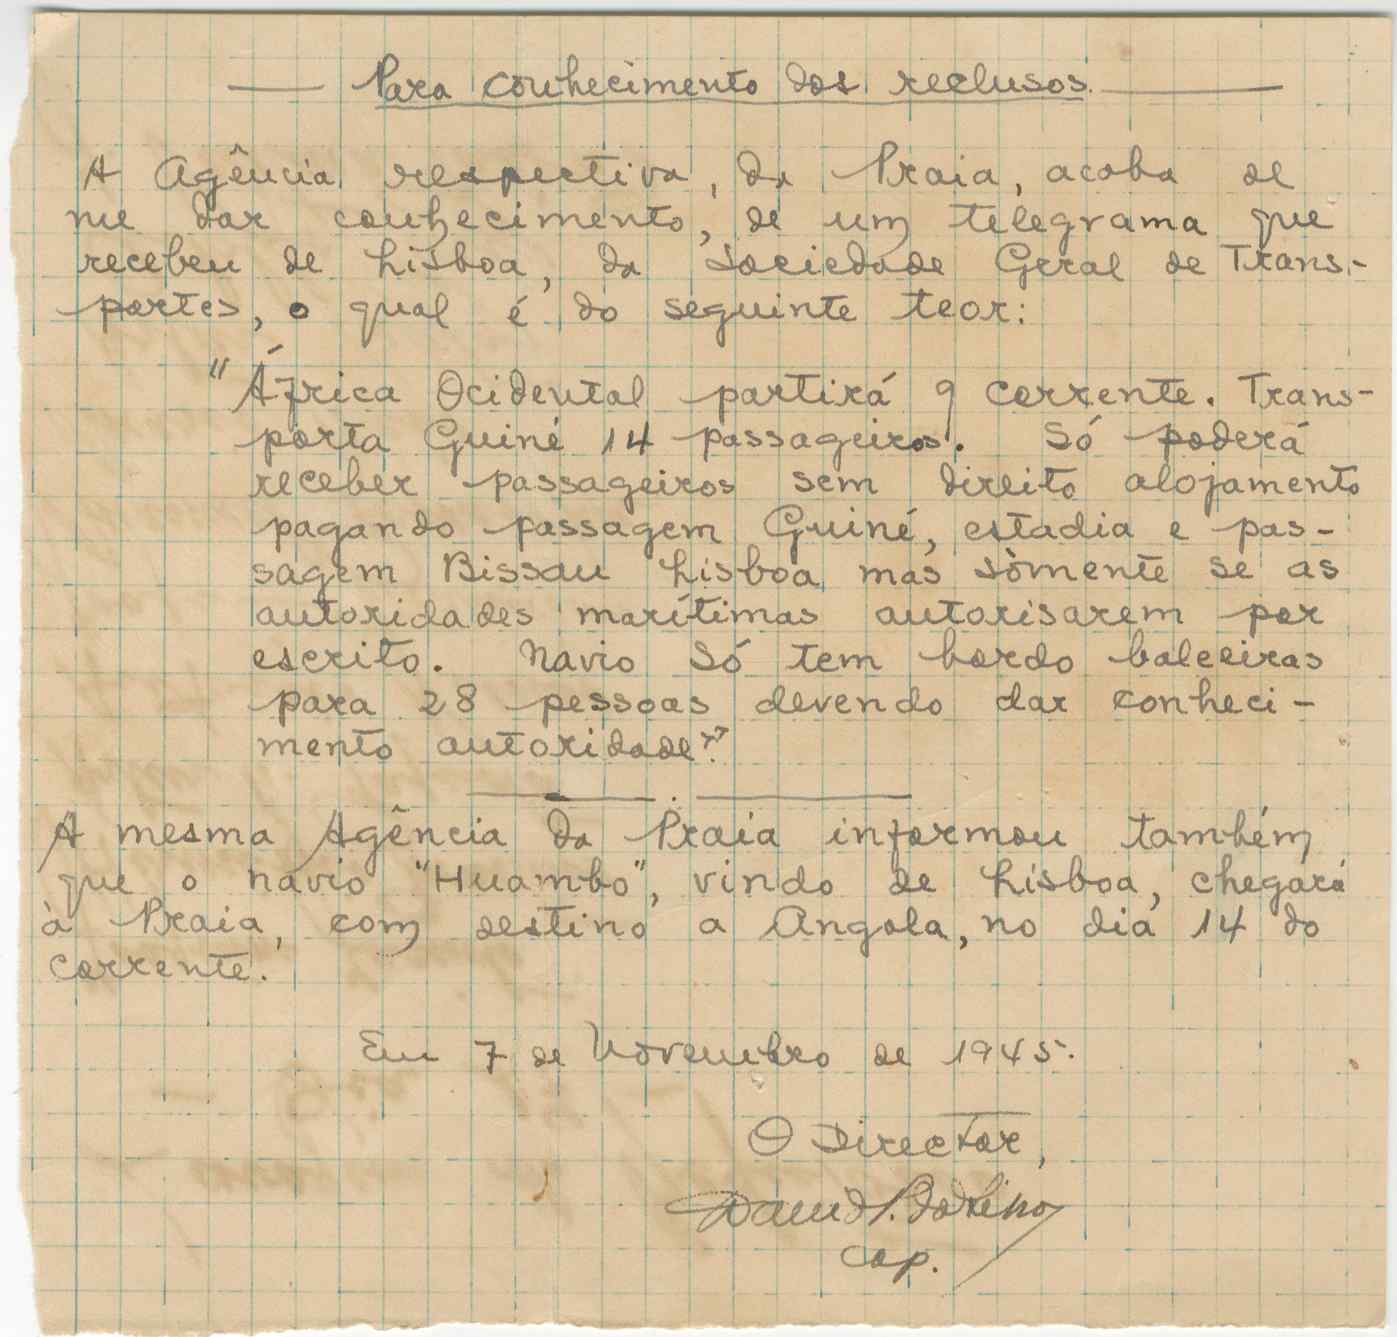 Para conhecimento dos reclusos.
A Agência respectiva, da Praia, acaba de
me dar conhecimento, de um telegrama que
recebeu de Lisboa, da Sociedade Geral de Trans-
portes, o qual é do seguinte teor:
"África Ocidental partirá 9 corrente. Trans-
porta Guiné 14 passageiros. Só poderá
receber passageiros sem direito alojamento
pagando passagem Guiné, estadia e pas-
sagem Bissau Lisboa mas sòmente se as
autoridades marítimas autorisarem por
escrito. Navio só tem bordo baleeiras
para 28 pessoas devendo dar conheci-
mento autoridade".
A mesma Agência da Praia informou também
que o navio "Huambo", vindo de Lisboa, chegará
à Praia, com destino a Angola, no dia 14 do
corrente.
Em 7 de Novembro de 1945.
O Director,
cap.